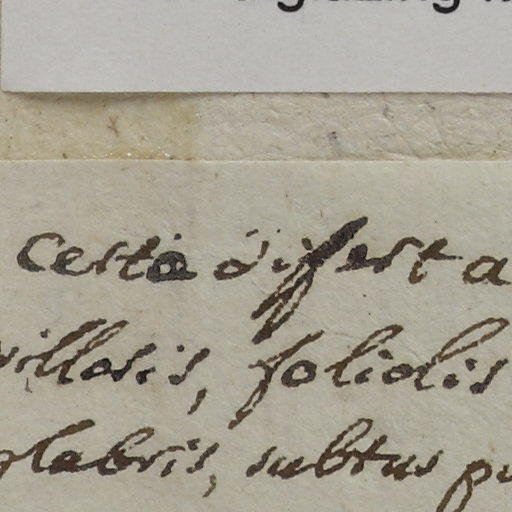 certe differt a
villosis, foliolis
glabris, subtus